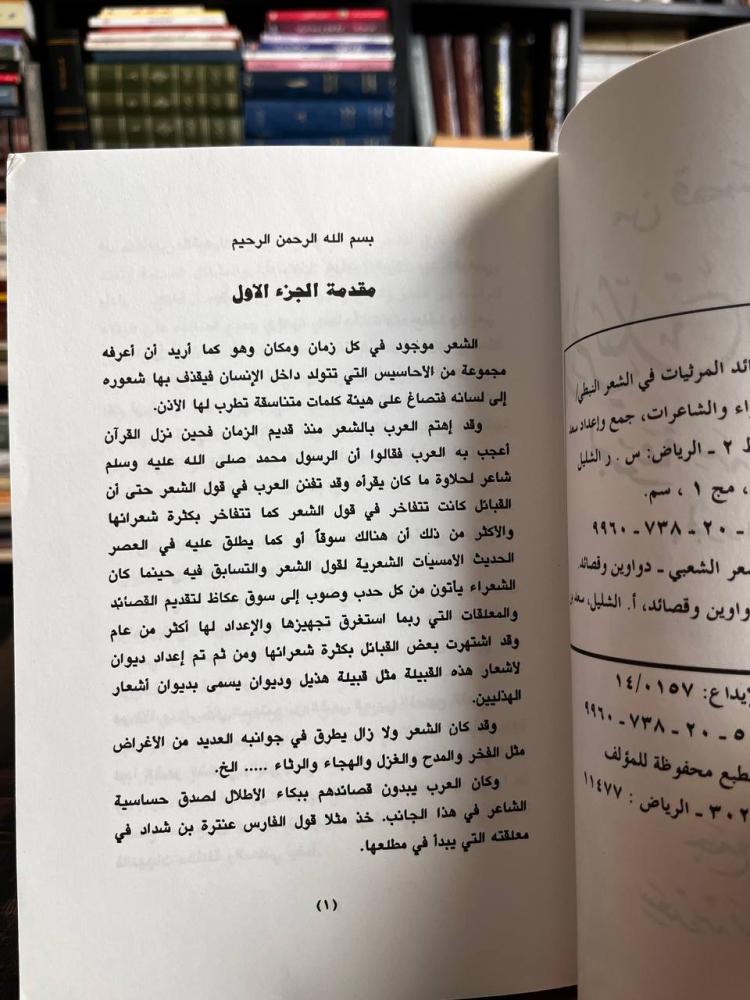 بسم الله الرحمن الرحيم
مقدمة الجزء الاول
الشعر موجود في كل زمان ومكان وهو كما أريد أن أعرفه
مجموعة من الأحاسيس التي تتولد داخل الإنسان فيقذف بها شعوره
إلى لسانه فتصاغ على هيئة كلمات متناسقة تطرب لها الأذن.
وقد إهتم العرب بالشعر منذ قديم الزمان فحين نزل القرآن
أعجب به العرب فقالوا أن الرسول محمد صلى الله عليه وسلم
شاعر لحلاوة ما كان يقرأه وقد تفنن العرب في قول الشعر حتى أن
القبائل كانت تتفاخر في قول الشعر كما تتفاخر بكثرة شعرائها
والأكثر من ذلك أن هنالك سوقاً أو كما يطلق عليه في العصر
الحديث الأمسيات الشعرية لقول الشعر والتسابق فيه حينما كان
الشعراء يأتون من كل حدب وصوب إلى سوق عكاظ لتقديم القصائد
والمعلقات التي ربما استغرق تجهيزها والإعداد لها أكثر من عام
وقد اشتهرت بعض القبائل بكثرة شعرائها ومن ثم تم إعداد ديوان
لأشعار هذه القبيلة مثل قبيلة هذيل وديوان يسمى بديوان أشعار
الهذليين.
وقد كان الشعر ولا زال يطرق في جوانبه العديد من الأغراض
مثل الفخر والمدح والغزل والهجاء والرثاء ..... الخ.
وكان العرب يبدون قصائدهم ببكاء الأطلال لصدق حساسية
الشاعر في هذا الجانب. خذ مثلا قول الفارس عنترة بن شداد في
معلقته التي يبدأ في مطلعها.
(١)
ئد المرثيات في الشعر النبطي/
راء والشاعرات، جمع وإعداد سعد
ط ٢ ـ الرياض: س . ر الشليل
، مج ١ ، سم.
٩٩٦٠ ـ ٧٣٨ ـ ٢٠ ـ
عر الشعبي ـ دواوين وقصائد.
دواوين وقصائد، أ. الشليل، سعد
إيداع: ١٤/٠١٥٧
٩٩٦٠ ـ ٧٣٨ ـ ٢٠ ـ ٥
طبع محفوظة للمؤلف
٣٠٢ ـ الرياض : ١١٤٧٧